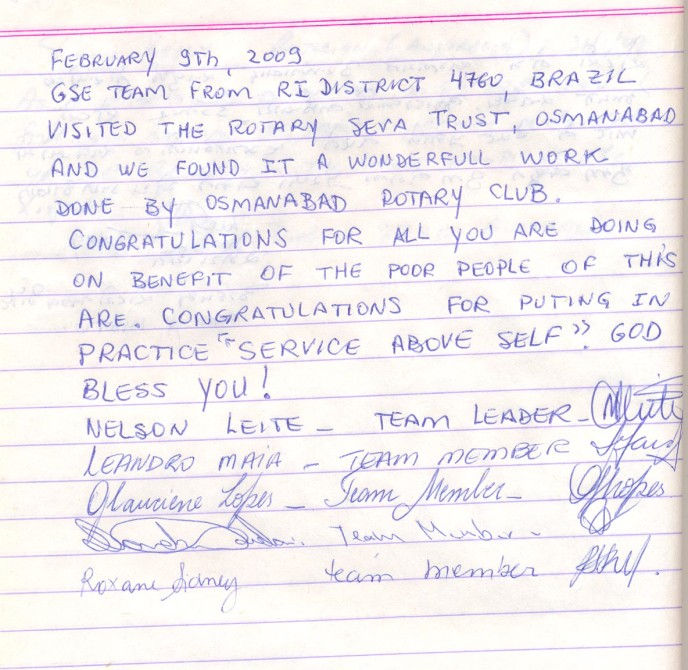 FEBRUARY 9Th, 2009
GSE TEAM FROM RI DISTRICT 4760, BRAZIL
VISITED THE ROTARY SEVA TRUST, OSMANABAD
AND WE FOUND IT A WONDERFULL WORK
DONE BY OSMANABAD ROTARY CLUB.
CONGRATULATIONS FOR ALL YOU ARE DOING
ON BENEFIT OF THE POOR PEOPLE OF THIS
ARE. CONGRATULATIONS FOR PUTING IN
PRACTICE "SERVICE ABOVE SELF". GOD
BLESS YOU!
NELSON LEITE - TEAM LEADER -
LEANDRO MAIA - TEAM MEMBER
Glauciene Lopes - Team Member -
Team Member -
Roxane Sidney team member